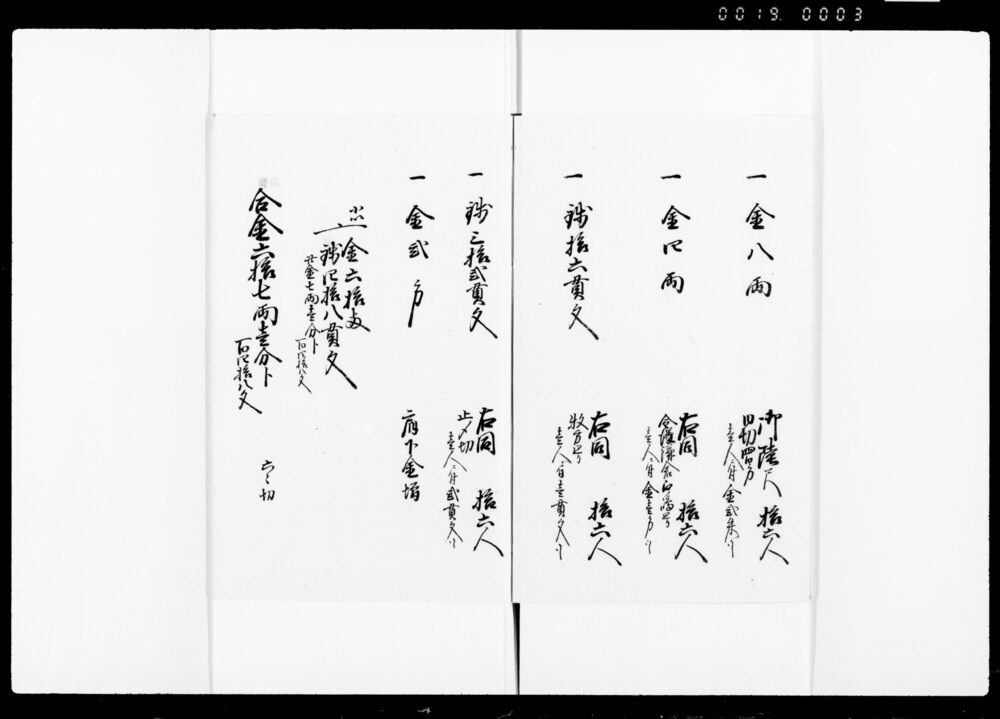 0019 0003
一 金八両
御陸尺 拾六人
壱人ニ付金弐朱ツヽ
一 金四両
右同 拾六人
壱人ニ付金壱分ツヽ
一 銭拾六貫文
右同 拾六人
壱人ニ付壱貫文ツヽ
一 銭三拾弐貫文
右同 拾六人
壱人ニ付弐貫文ツヽ
一 金弐分
小以
金六拾両
銭四拾八貫文
此金七両壱分ト
百四拾八文
合金六拾七両壱分ト
百四拾八文